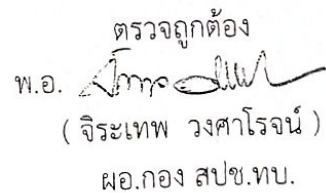 ตรวจถูกต้อง
พ.อ.
( จิระเทพ วงศาโรจน์ )
ผอ.กอง สปช.ทบ.